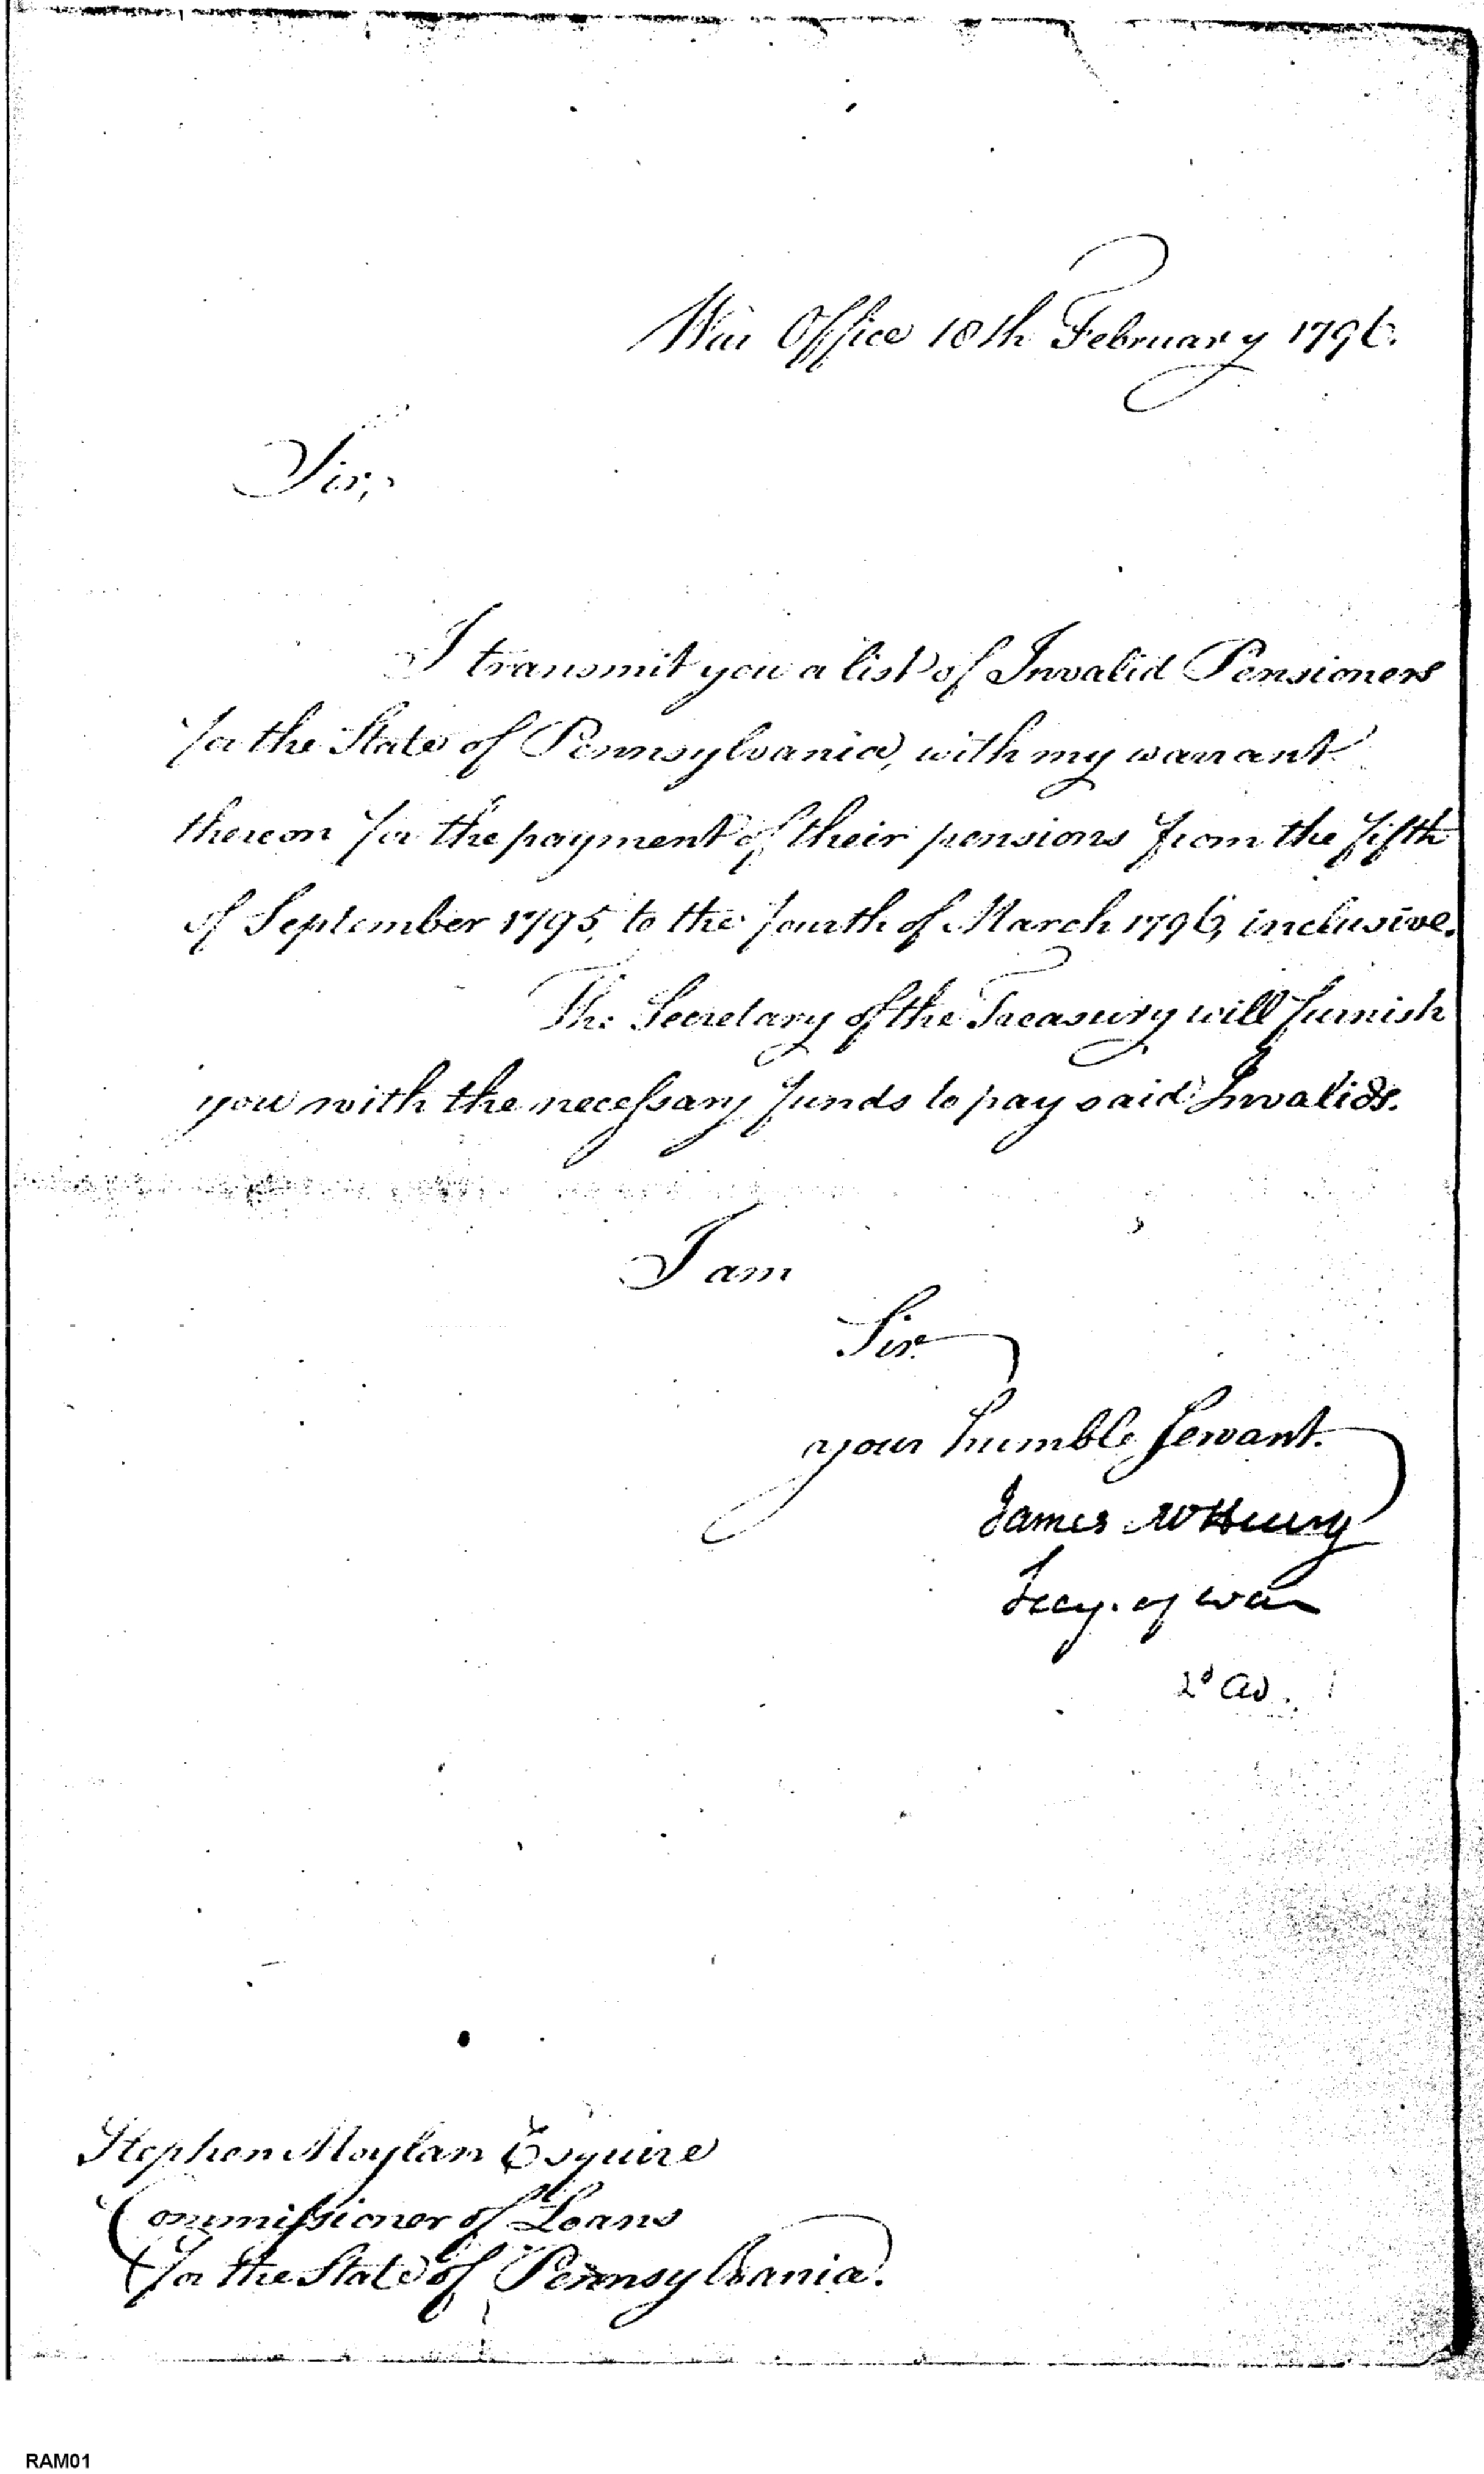 War Office 18th February 1796.
Sir,
I transmit you a list of Invalid Pensioners
for the State of Pennsylvania, with my warrant
thereon for the payment of their pensions from the fifth
of September 1795, to the fourth of March 1796, inclusive.
The Secretary of the Treasury will furnish
you with the necessary funds to pay said Invalids.
I am
Sir
your humble Servant.
James McHenry
Secy. of war
Stephen Moylan Esquire
Commissioner of Loans
for the State of Pennsylvania.
RAM01